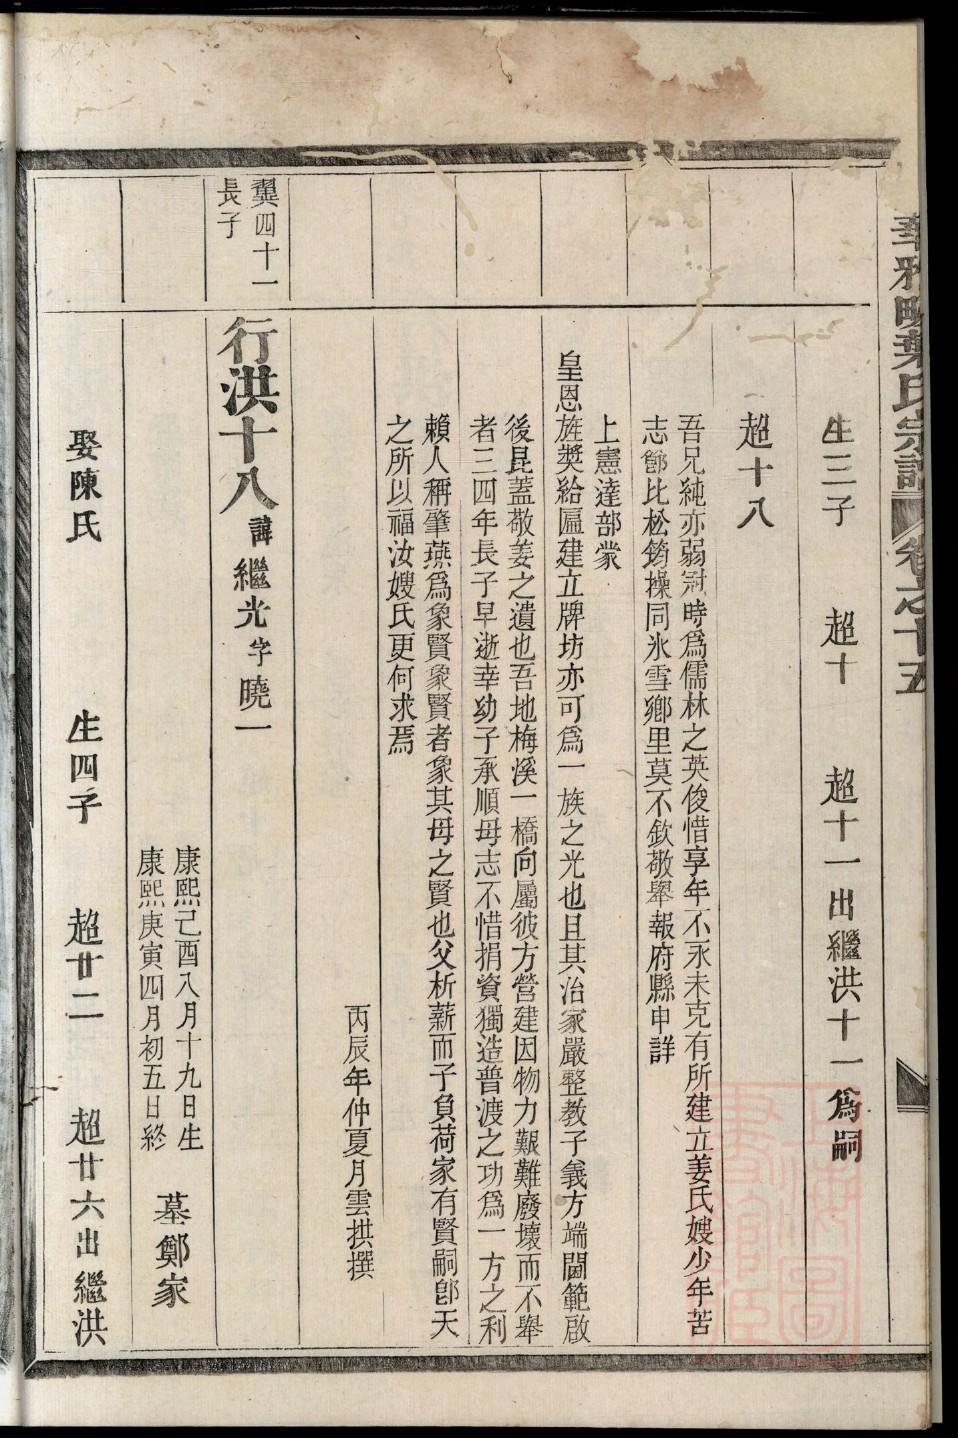 葉氏宗譜 卷之十五
生三子 超十 超十一出繼洪十一為嗣
超十八
吾兄純亦弱冠時為儒林之英俊惜享年不永未克有所建立姜氏嫂少年苦
志節比松筠操同氷雪鄉里莫不欽敬舉報府縣申詳
上憲達部蒙
皇恩旌奬給匾建立牌坊亦可為一族之光也且其治家嚴整教子義方端閫範啟
後昆蓋敬姜之遺也吾地梅溪一橋向屬彼方營建因物力艱難廢壞而不舉
者三四年長子早逝幸幼子承順母志不惜捐資獨造普渡之功為一方之利
賴人稱肇燕為象賢象賢者象其母之賢也父析薪而子負荷家有賢嗣卽天
之所以福汝嫂氏更何求焉
丙辰年仲夏月雲拱撰
翼四十一
長子
行洪十八 諱繼光字曉一
康熙己酉八月十九日生
康熙庚寅四月初五日終
墓鄭家
娶陳氏 生四子 超廿二 超廿六出繼洪